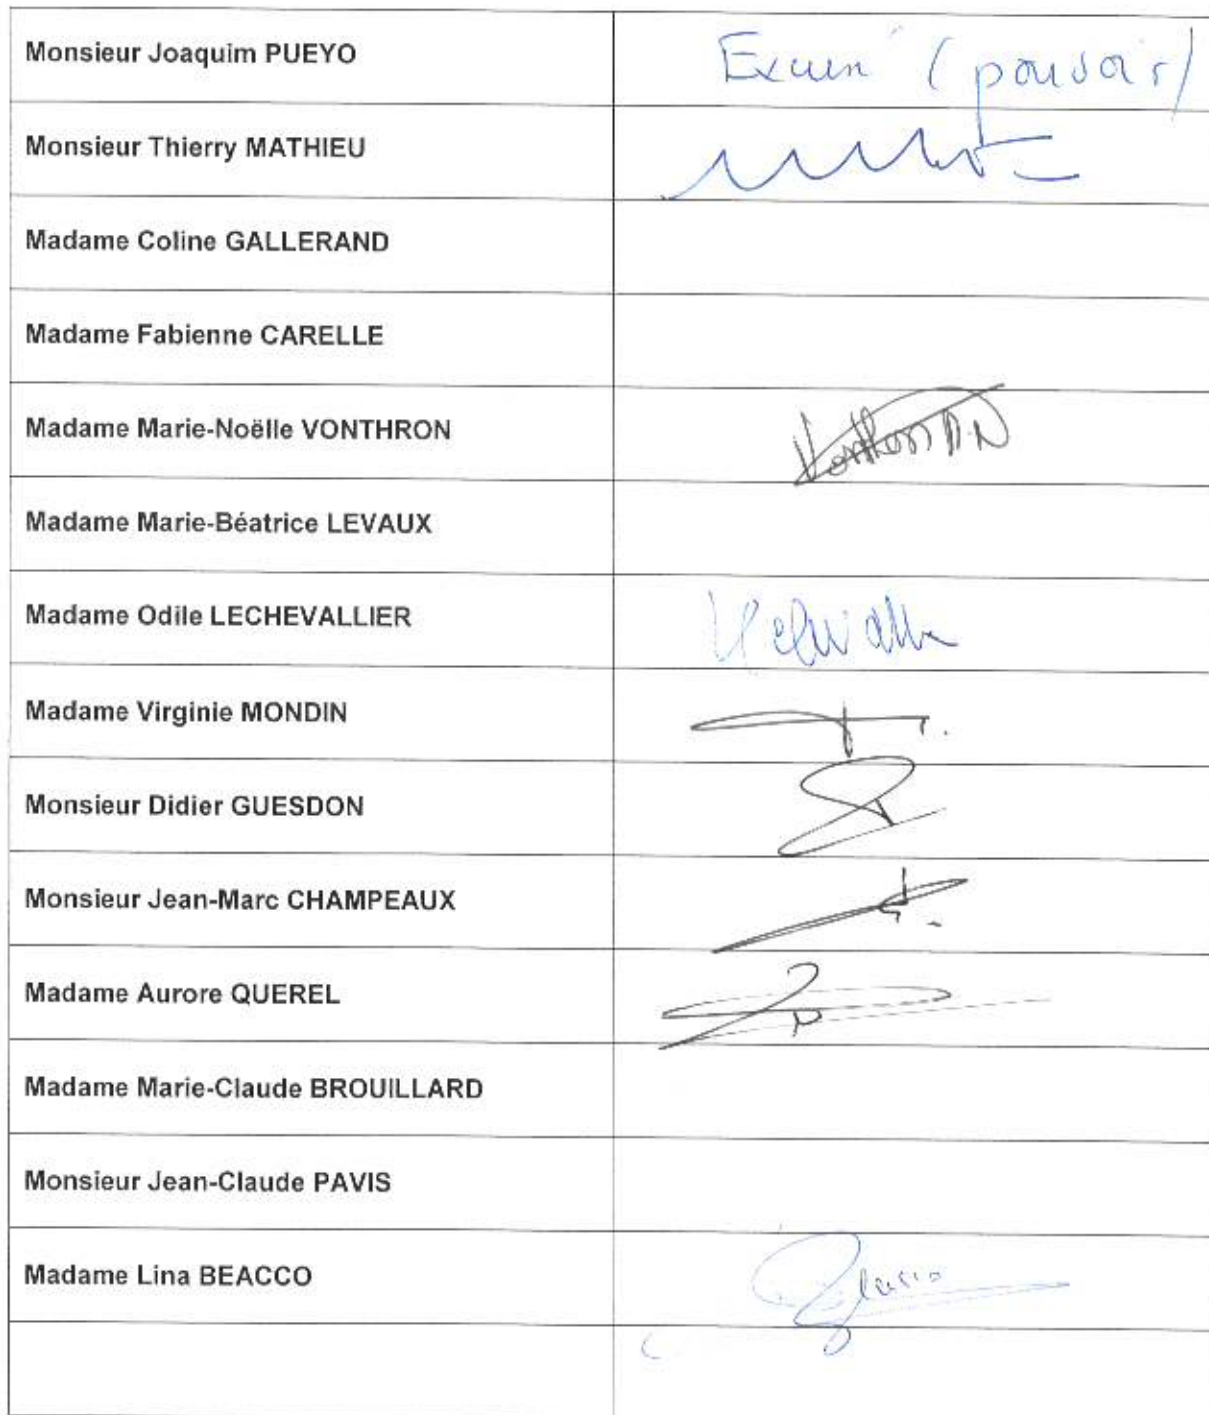 Monsieur Joaquim PUEYO
Excusé (pouvoir)
Monsieur Thierry MATHIEU
Madame Coline GALLERAND
Madame Fabienne CARELLE
Madame Marie-Noëlle VONTHRON
Vonthron M.N
Madame Marie-Béatrice LEVAUX
Madame Odile LECHEVALLIER
Madame Virginie MONDIN
Monsieur Didier GUESDON
Monsieur Jean-Marc CHAMPEAUX
Madame Aurore QUEREL
Madame Marie-Claude BROUILLARD
Monsieur Jean-Claude PAVIS
Madame Lina BEACCO